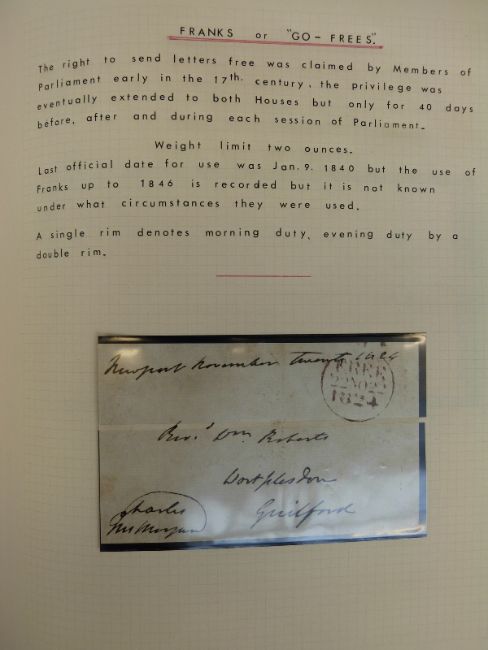 FRANKS or "GO-FREES".
The right to send letters free was claimed by Members of
Parliament early in the 17th. century, the privilege was
eventually extended to both Houses but only for 40 days
before, after and during each session of Parliament.
Weight limit two ounces.
Last official date for use was Jan. 9. 1840 but the use of
Franks up to 1846 is recorded but it is not known
under what circumstances they were used.
A single rim denotes morning duty, evening duty by a
double rim.
Newport November twenty 1824
FREE
22 NO 22
1824
Revd. Wm Roberts
Worplesdon
Guilford
Charles
Morgan